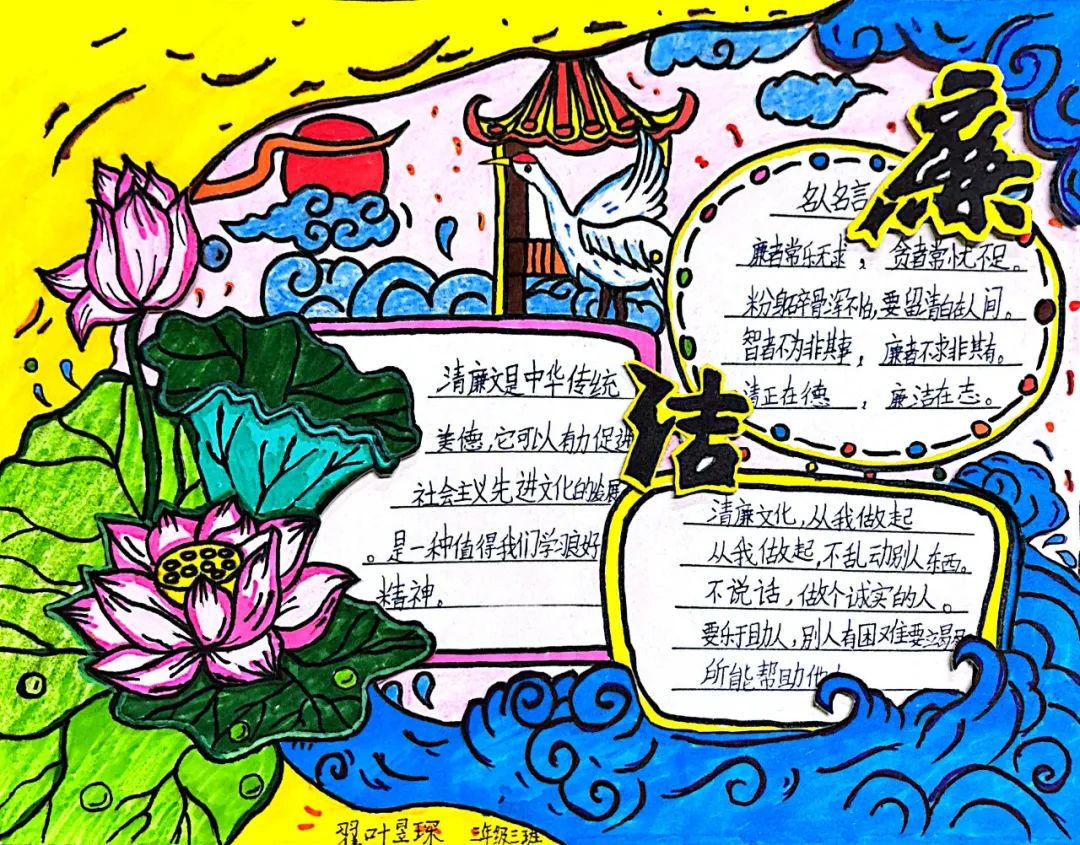 廉
洁
名人名言
廉者常乐无求，贪者常忧不足。
粉身碎骨浑不怕,要留清白在人间。
智者不为非其事，廉者不求非其有。
清正在德，廉洁在志。
清廉文是中华传统
美德,它可以有力促进
社会主义先进文化的发展
。是一种值得我们学习良好
精神。
清廉文化,从我做起
从我做起,不乱动别人东西。
不说话,做个诚实的人。
要乐于助人,别人有困难要
所能帮助他
翟叶昱琛 三年级三班